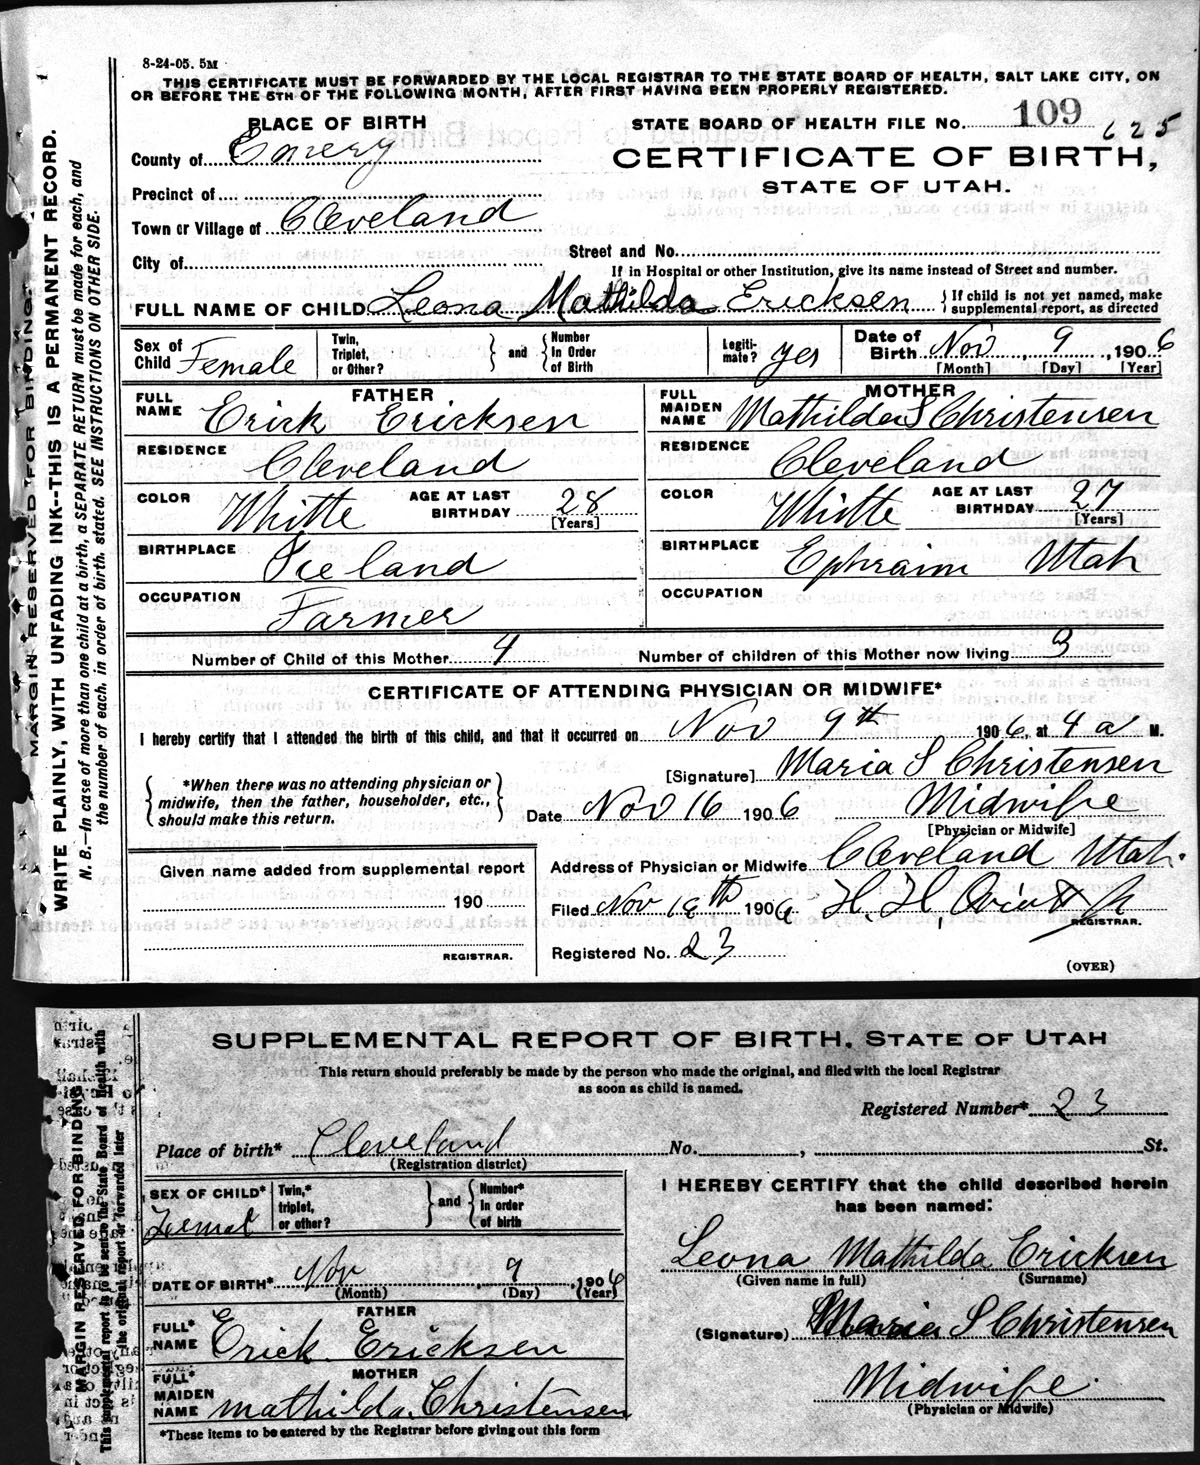 8-24-05. 5M
THIS CERTIFICATE MUST BE FORWARDED BY THE LOCAL REGISTRAR TO THE STATE BOARD OF HEALTH, SALT LAKE CITY, ON
OR BEFORE THE 5TH OF THE FOLLOWING MONTH, AFTER FIRST HAVING BEEN PROPERLY REGISTERED.
PLACE OF BIRTH
STATE BOARD OF HEALTH FILE No. 109 625
County of Emery
CERTIFICATE OF BIRTH,
STATE OF UTAH.
Precinct of
Town or Village of Cleveland
City of
Street and No.
If in Hospital or other Institution, give its name instead of Street and number.
FULL NAME OF CHILD Leona Mathilda Ericksen { If child is not yet named, make
supplemental report, as directed
Sex of Child Female
Twin, Triplet, or Other? } and { Number In Order of Birth
Legiti- mate? yes
Date of Birth Nov, 9, 1906
[Month] [Day] [Year]
FATHER
FULL NAME Erick Ericksen
RESIDENCE Cleveland
COLOR Whitte AGE AT LAST BIRTHDAY 28 [Years]
BIRTHPLACE Iceland
OCCUPATION Farmer
MOTHER
FULL MAIDEN NAME Mathilda S Christensen
RESIDENCE Cleveland
COLOR Whitte AGE AT LAST BIRTHDAY 27 [Years]
BIRTHPLACE Ephraim Utah
OCCUPATION
Number of Child of this Mother 4 Number of children of this Mother now living 3
CERTIFICATE OF ATTENDING PHYSICIAN OR MIDWIFE*
I hereby certify that I attended the birth of this child, and that it occurred on Nov 9th 1906, at 4 a M.
{ *When there was no attending physician or
midwife, then the father, householder, etc.,
should make this return. }
[Signature] Maria S Christensen
Date Nov 16 1906 Midwife
[Physician or Midwife]
Given name added from supplemental report
190
REGISTRAR.
Address of Physician or Midwife Cleveland Utah.
Filed Nov 18th 1906 H. H. Oviatt Jr
REGISTRAR.
Registered No. 23
(OVER)
MARGIN RESERVED FOR BINDING.
WRITE PLAINLY, WITH UNFADING INK--THIS IS A PERMANENT RECORD.
N. B.—In case of more than one child at a birth, a SEPARATE RETURN must be made for each, and
the number of each, in order of birth, stated. SEE INSTRUCTIONS ON OTHER SIDE.
SUPPLEMENTAL REPORT OF BIRTH, STATE OF UTAH
This return should preferably be made by the person who made the original, and filed with the local Registrar
as soon as child is named.
Registered Number* 23
Place of birth* Cleveland No. , St.
(Registration district)
SEX OF CHILD* Femal
Twin,* triplet, or other? } and { Number* In order of birth
DATE OF BIRTH* Nov, 9, 1906
(Month) (Day) (Year)
FATHER
FULL* NAME Erick Ericksen
MOTHER
FULL* MAIDEN NAME mathilda Christensen
*These items to be entered by the Registrar before giving out this form
I HEREBY CERTIFY that the child described herein
has been named:
Leona Mathilda Ericksen
(Given name in full) (Surname)
(Signature) Maria S Christensen
Midwife.
(Physician or Midwife)
MARGIN RESERVED FOR BINDING
This supplemental report is to be sent to the State Board of Health with
the original report or forwarded later